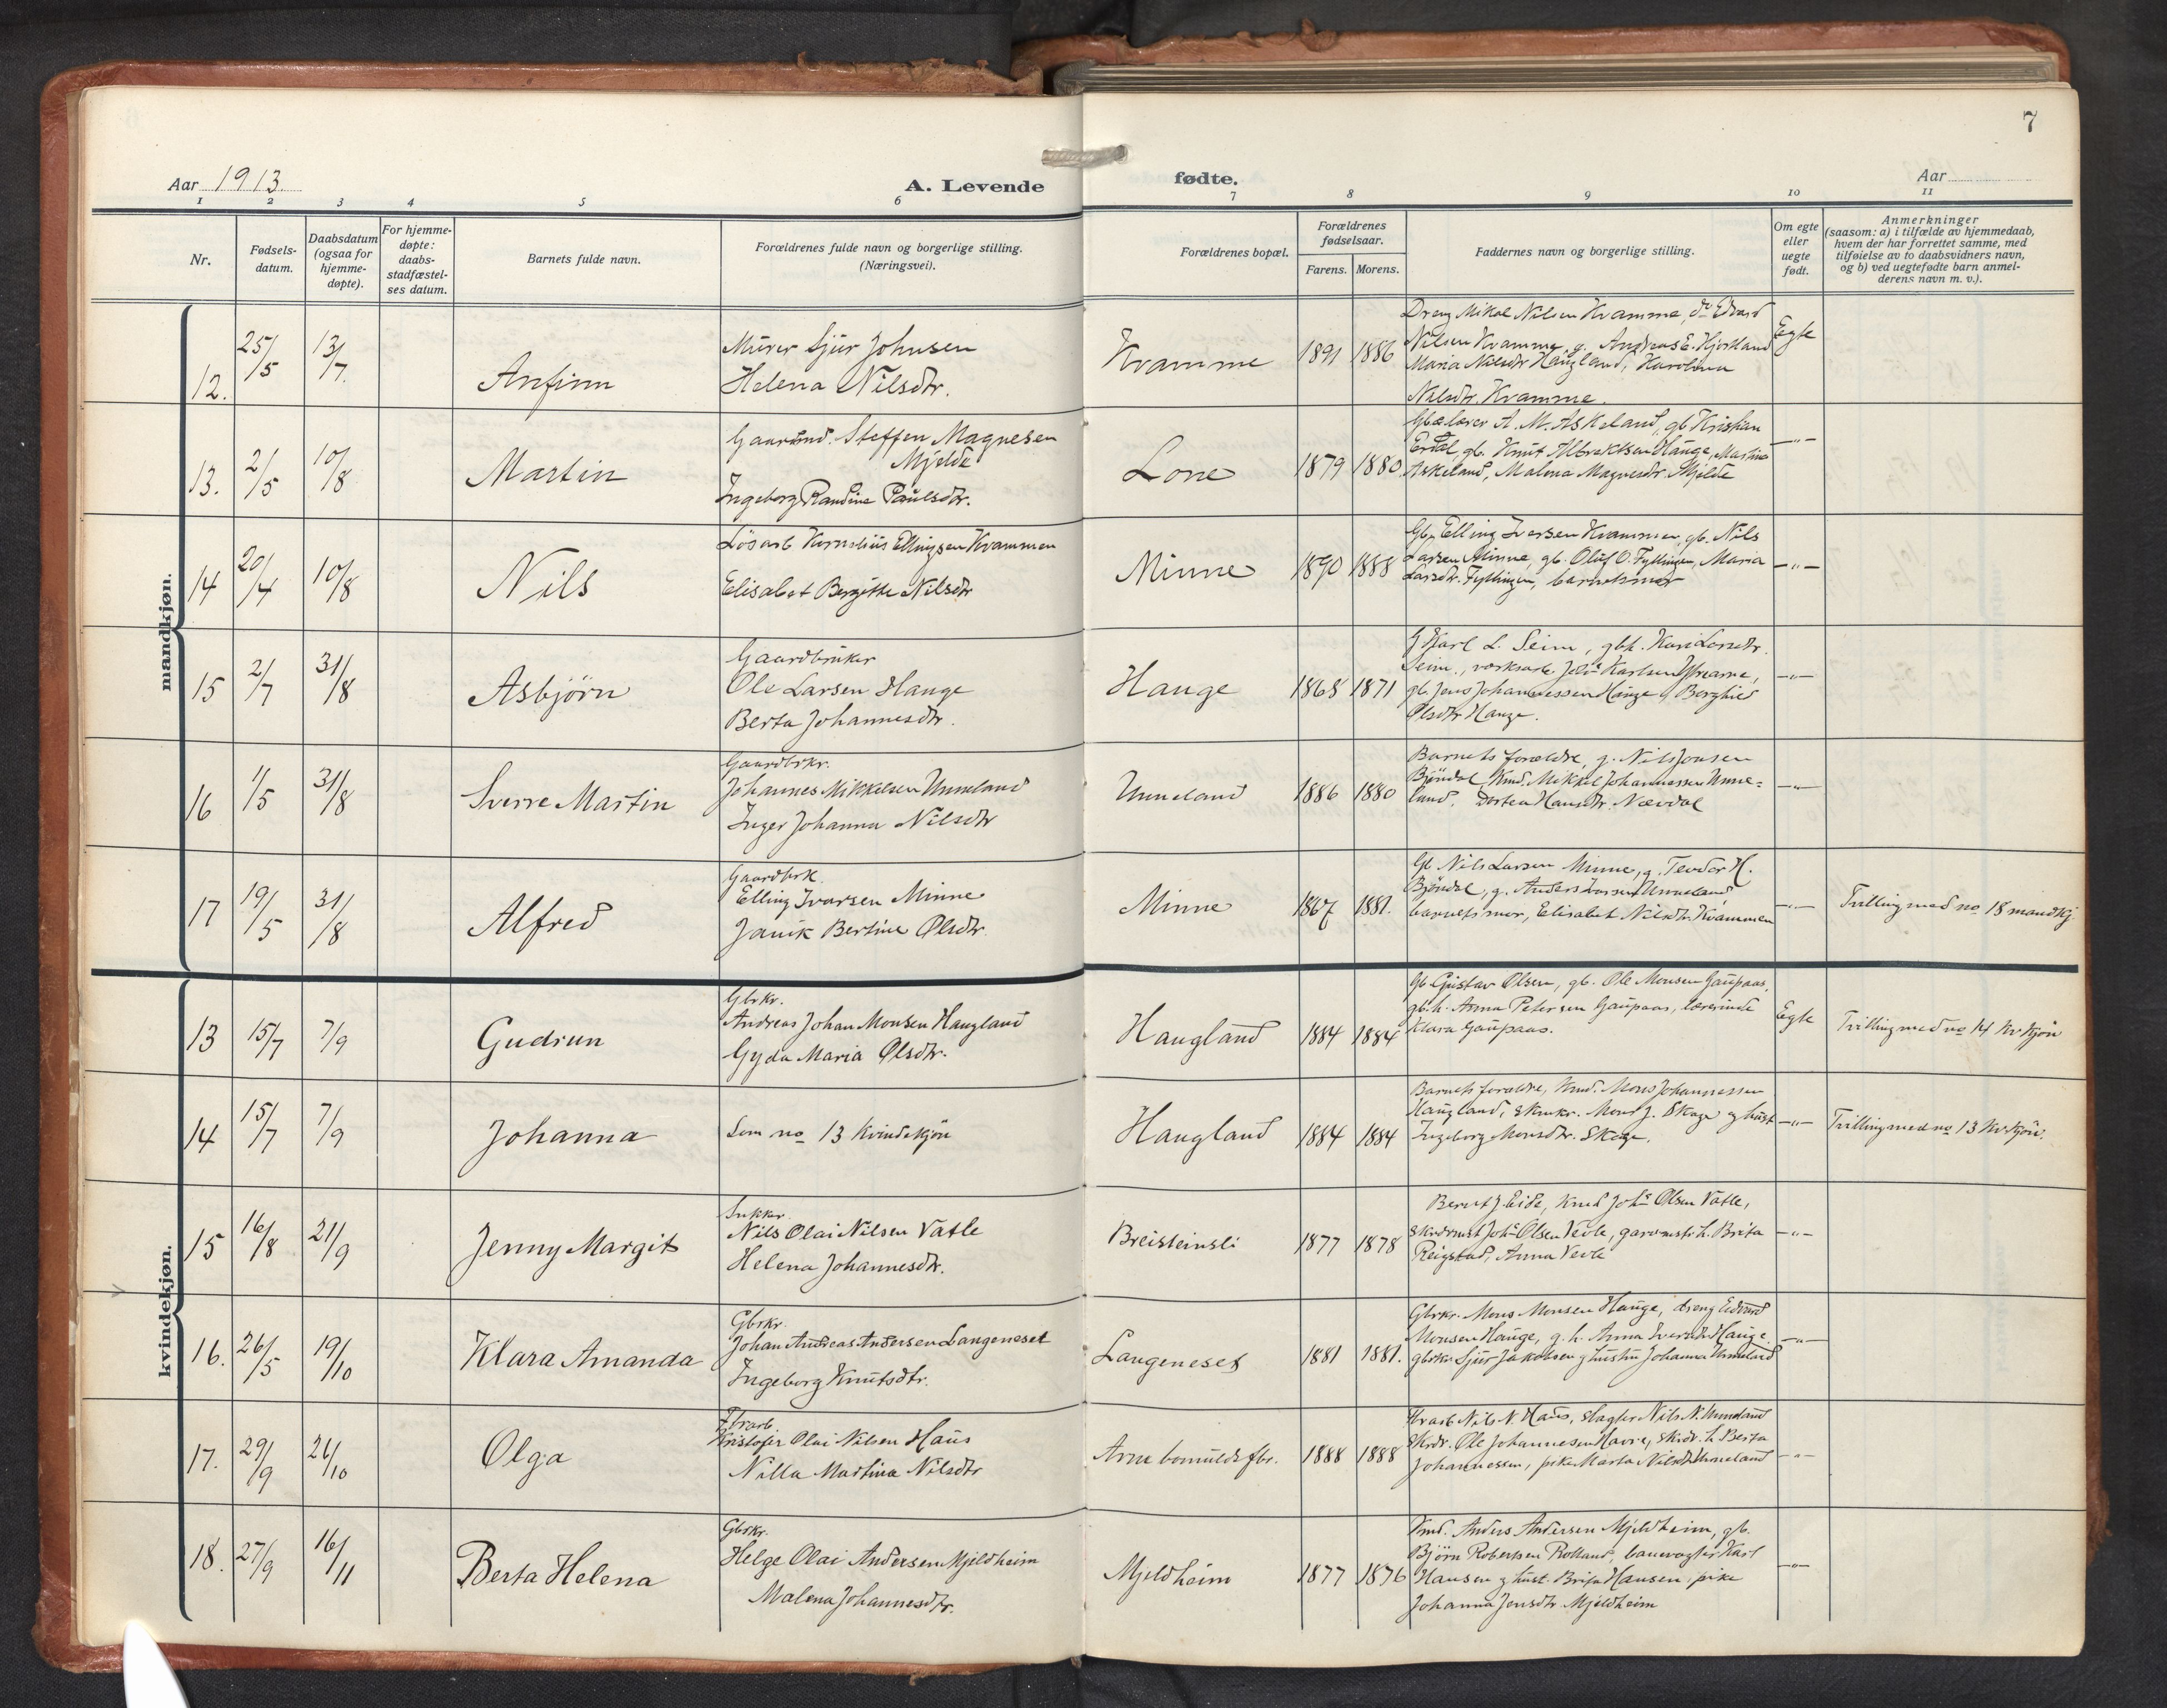 7
Aar 1913.
A. Levende
fødte.
Aar
1 2 3 4 5 6 7 8 9 10 11
Nr.
Fødsels-
datum.
Daabsdatum
(ogsaa for
hjemme-
døpte).
For hjemme-
døpte:
daabs-
stadfæstel-
ses datum.
Barnets fulde navn.
Forældrenes fulde navn og borgerlige stilling.
(Næringsvei).
Forældrenes bopæl.
Forældrenes
fødselsaar.
Farens. Morens.
Faddernes navn og borgerlige stilling.
Om egte
eller
uegte
født.
Anmerkninger
(saasom: a) i tilfælde av hjemmedaab,
hvem der har forrettet samme, med
tilføielse av to daabsvidners navn,
og b) ved uegtefødte barn anmel-
derens navn m. v.).
mandkjøn.
12. 25/5 13/7. Anfinn
Murer Sjur Johnsen
Helena Nilsdtr.
Kvamme 1891 1886
Dreng Mikal Nilsen Kvamme, do Edvard
Nilsen Kvamme, g. Andreas E. Hjortland
Maria Nilsdtr Haugland, Karolina
Nilsdtr. Kvamme.
Egte
13. 2/5 10/8 Martin
Gaardmd. Steffen Magnesen
Mjelde
Ingeborg Randine Paulsdtr.
Lone 1879 1880
A. M. Askeland, gb Kristian
gb. Knut Albrektsen Hauge, Martine
Askeland, Malena Magnesdtr. Mjelde
-"-
14 20/4 10/8 Nils
Løsarb Kornelius Ellingsen Kvammen
Elisabet Bergitte Nilsdtr
Minne 1890 1888
Gb. Elling Iversen Kvammen, gb. Nils
Larsen Minne, gb. Oluf O. Fyllingen, Maria
Larsdtr. Fyllingen, barnets mor
-"-
15 2/7 31/8 Asbjörn
Gaardbruker
Ole Larsen Hauge
Berta Johannesdtr.
Hauge 1868 1871
Karl L. Seim, gbh. Kari Larsdtr.
Seim, Karlsen
gb. Jens Johannessen Hauge, Borghild
Olsdtr Hauge.
-"-
16 1/5 31/8 Sverre Martin
Gaardbrkr.
Johannes Mikkelsen Unneland
Inger Johanna Nilsdtr
Unneland 1886 1880
Barnets forældre, g. Nils Jonsen
Bjöndal, Kmd. Mikkel Johannessen Unne-
land, Dortea Hansdtr. Nævdal
-"-
17 19/5 31/8 Alfred
Gaardbrk.
Elling Ivarsen Minne
Janik Bertine Olsdtr.
Minne 1867 1881.
Gb Nils Larsen Minne, g. Teodor H.
Bjöndal, g. Anders Larsen Unneland
barnets mor, Elisabet Nilsdtr. Kvammen
-"-
Tvilling med no 18 mandkj.
kvindekjøn.
13 15/7 7/9 Gudrun
Gbrkr.
Andreas Johan Monsen Haugland
Gyda Maria Olsdtr.
Haugland 1884 1884
Gb Gustav Olsen, gb. Ole Monsen Gaupaas,
gb.h. Anna Petersen Gaupaas, lærerinde
Klara Gaupaas.
Egte
Tvilling med no 14 kvkjön
14 15/7 7/9 Johanna
Som no 13 Kvindekjön
Haugland 1884 1884
Barnets forældre, Kmd. Mons Johannessen
Haugland, Mons J. Skage og hust
Ingeborg Monsdtr. Skage.
-"-
Tvilling med no 13 kvkjön.
15 16/8 21/9 Jenny Margit
Nils Olai Nilsen Vatle
Helena Johannesdtr.
Breisteinsli 1877 1878
Bernt J. Eide, Kmd Johs Olsen Vatle,
Johs Olsen Vevle, h. Brita
Reigstad, Anna Vevle
-"-
16. 26/5 19/10 Klara Amanda
Gbrkr.
Johan Andreas Andersen Langeneset
Ingeborg Knutsdtr.
Langeneset 1881 1881.
Gbrkr. Mons Monsen Hauge, dreng Edvard
Monsen Hauge, g. h. Anna Iversdtr Hauge
gbrkr Sjur Jakobsen g hustru Johanna Unneland
-"-
17. 29/9 26/10 Olga
Fbrarb.
Kristofer Olai Nilsen Haus
Nilla Martina Nilsdtr
Arne bomuldsfbr. 1888 1888
Nils N. Haus, slagter Nils N. Unneland
Skrdr. Ole Johannesen Havre, skrdr. h. Berta
Johannessen, pike Marta Nilsdtr Unneland
-"-
18. 27/9 16/11 Berta Helena
Gbrkr.
Helge Olai Andersen Mjeldheim
Malena Johannesdtr.
Mjeldheim 1877 1876
Kmd. Anders Andersen Mjeldheim, gb.
Björn Robertsen Rolland, banevogter Karl
Hansen g hust. Brita Hansen, pike
Johanna Jensdtr Mjeldheim
-"-